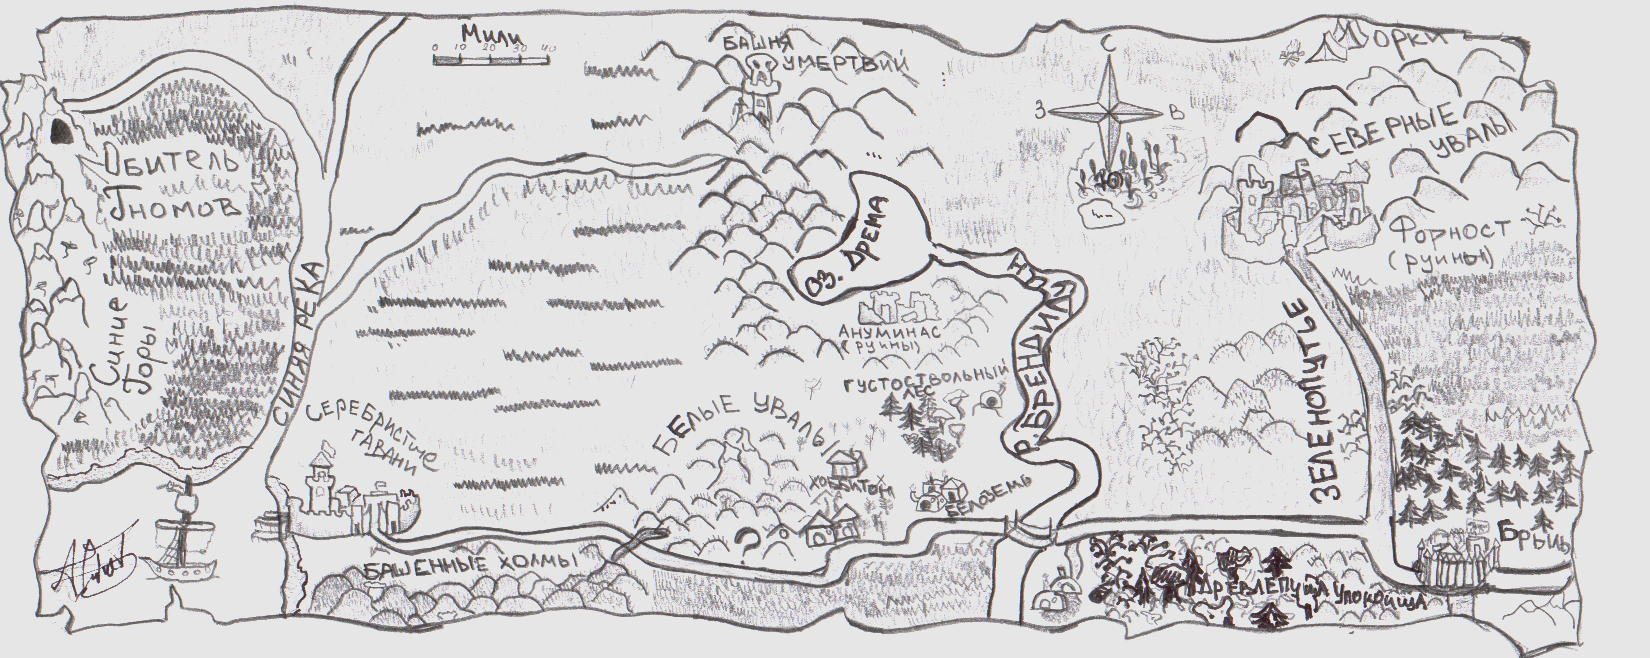 Мили
0 10 20 30 40
БАШНЯ
УМЕРТВИЙ
ОРКИ
С
З
В
СЕВЕРНЫЕ
УВАЛЫ
Обитель
Гномов
ОЗ. ДРЕМА
Форност
(руины)
Синие
Горы
СИНЯЯ РЕКА
АНУМИНАС
(РУИНЫ)
Р. БРЕНДИДУИН
ЗЕЛЕНОПУТЬЕ
ГУСТОСТВОЛЬНЫЙ
ЛЕС
СЕРЕБРИСТЫЕ
ГАВАНИ
БЕЛЫЕ УВАЛЫ
ХОББИТОН
БЕЛОЗЕМЬ
Брыль
БАШЕННЫЕ ХОЛМЫ
ДРЕВЛЕПУЩА
УПОКОИЩА